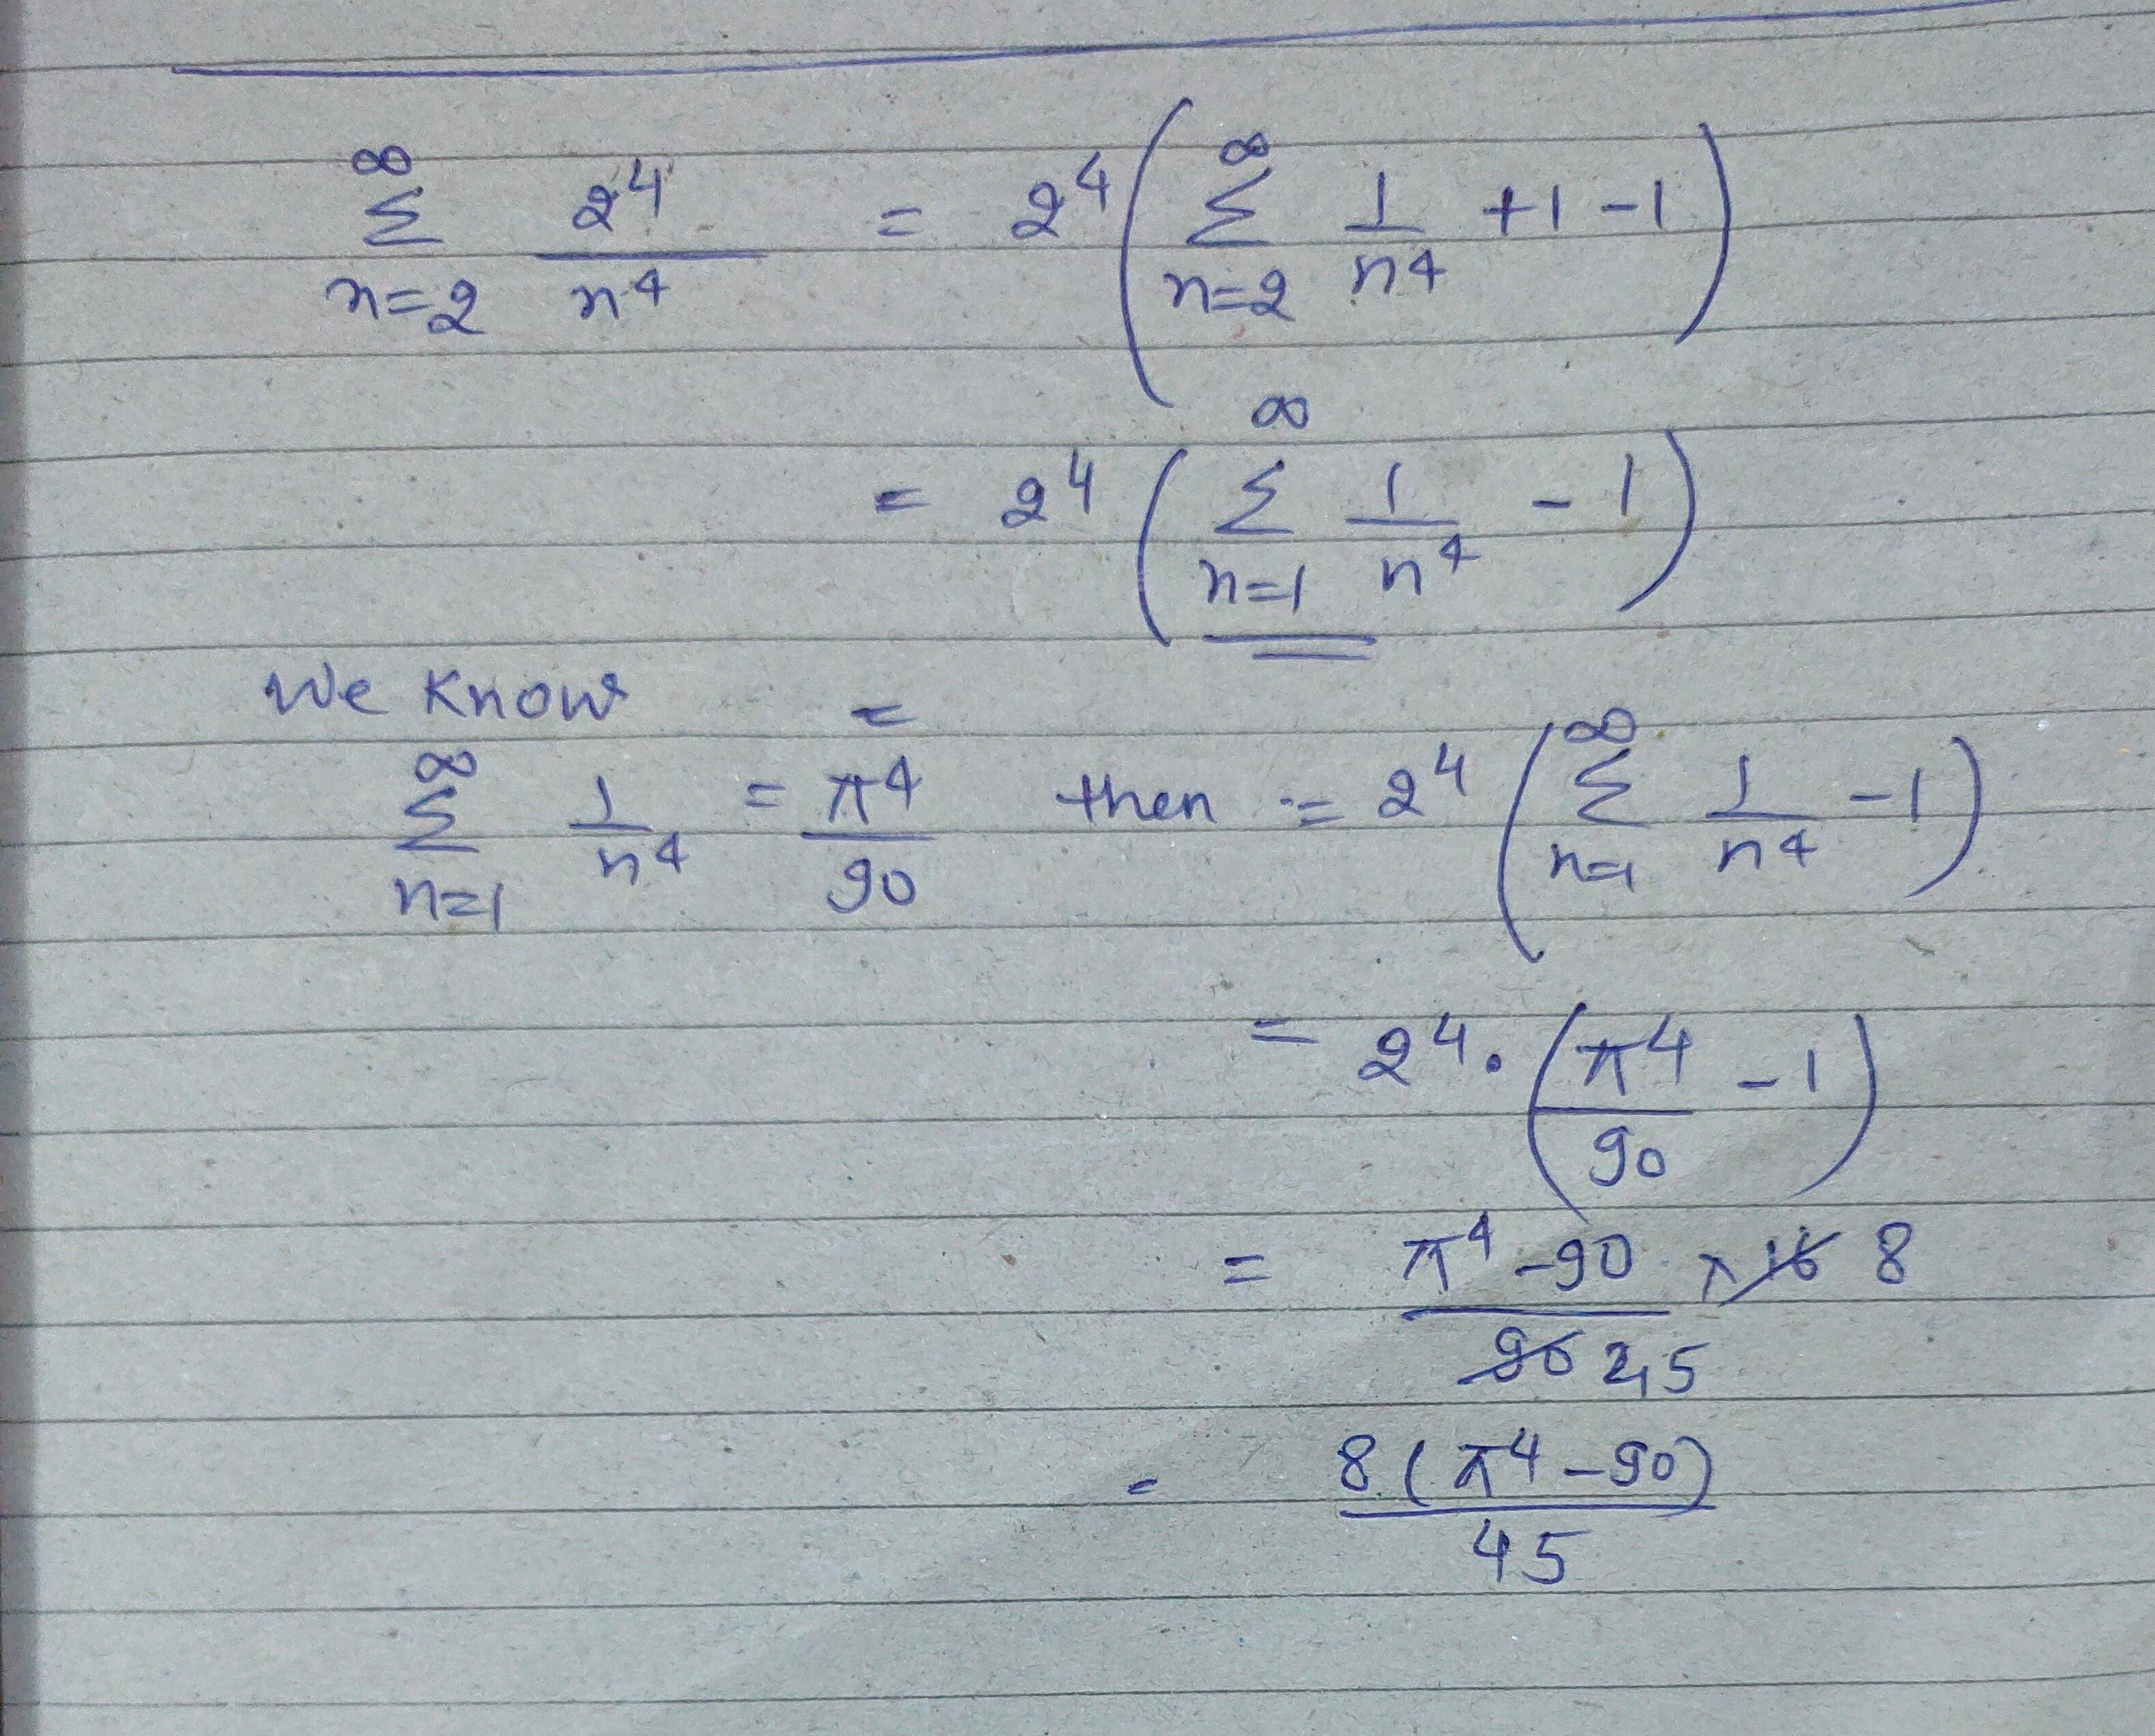 ∞∑n=2 2⁴/n⁴ = 2⁴(∞∑n=2 1/n⁴ +1 -1)
= 2⁴(∞∑n=1 1/n⁴ - 1)
We Know =
∞∑n=1 1/n⁴ = π⁴/90 then = 2⁴(∞∑n=1 1/n⁴ - 1)
= 2⁴·(π⁴/90 - 1)
= π⁴-90/90 45 × 16 8
= 8(π⁴-90)/45